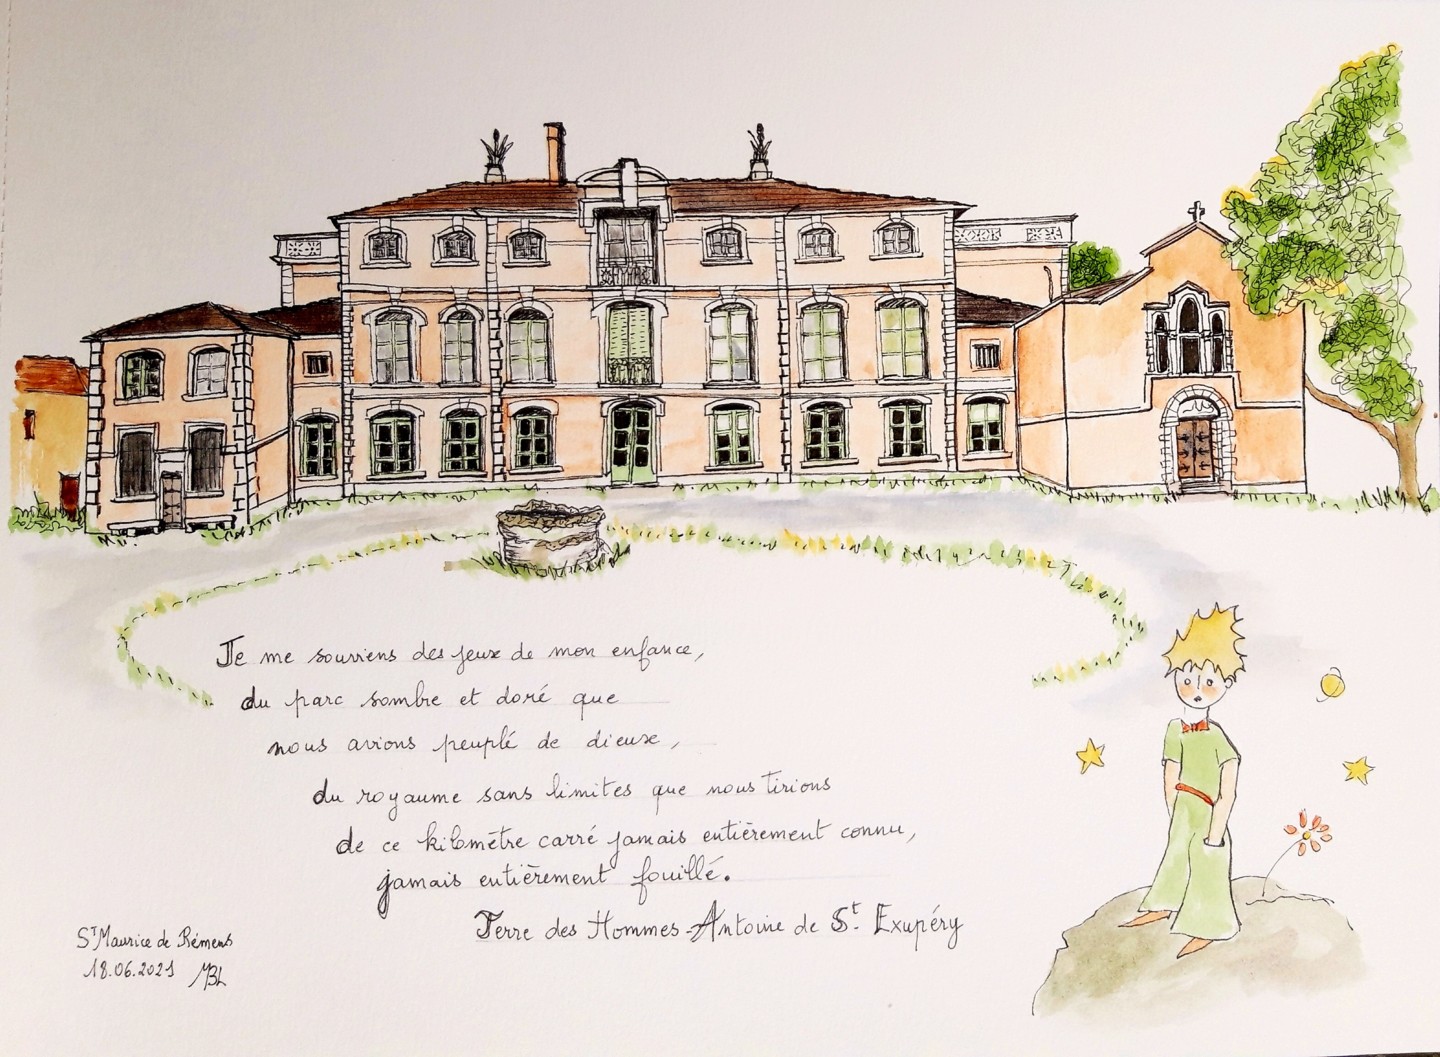 Je me souviens des jeux de mon enfance,
du parc sombre et doré que
nous avions peuplé de dieux,
du royaume sans limites que nous tirions
de ce kilomètre carré jamais entièrement connu,
jamais entièrement fouillé.
Terre des Hommes - Antoine de St. Exupéry
St Maurice de Rémens
18.06.2021 MBL